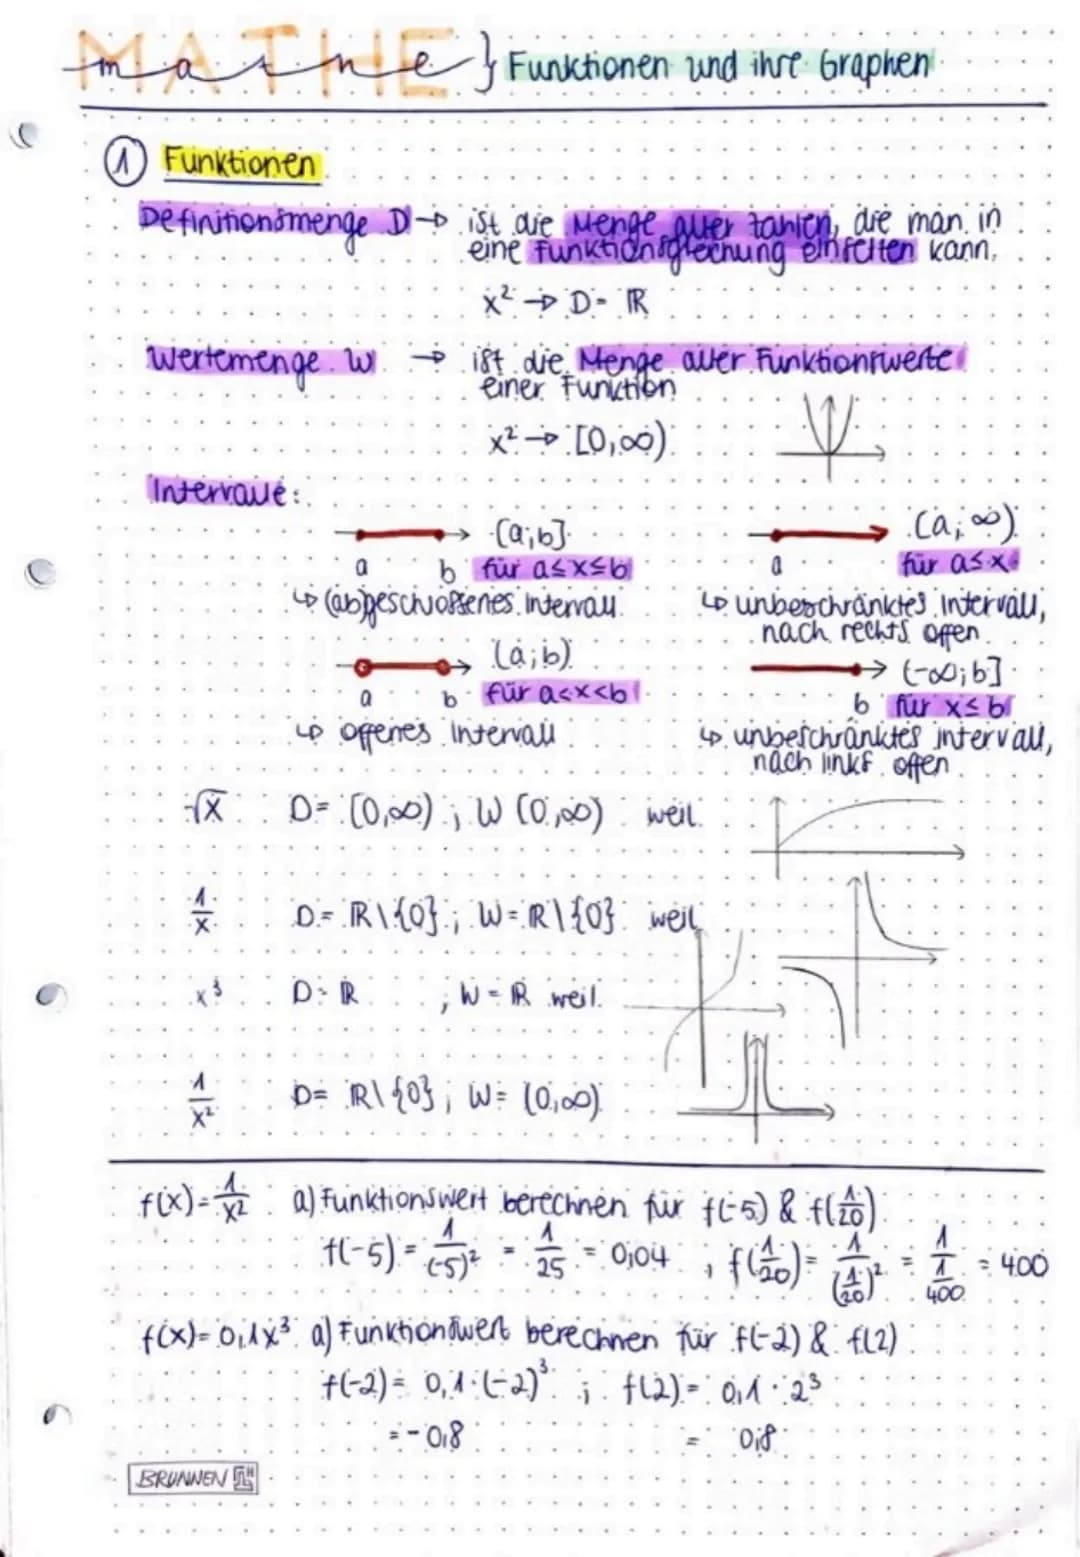 MATHE
mathe } Funktionen und ihre Graphen
① Funktionen
Definitionsmenge D → ist die Menge aller Zahlen, die man in
eine Funktionsgleichung einsetzen kann.
x² → D = ℝ
Wertemenge W → ist die Menge aller Funktionswerte
einer Funktion
x² → [0,∞)
Intervalle:
a b [a;b] für a≤x≤b
↳ (ab)geschlossenes Intervall
a (a,∞) für a≤x
↳ unbeschränktes Intervall,
nach rechts offen
a b (a;b) für a<x<b
↳ offenes Intervall
b (-∞;b] für x≤b
↳ unbeschränktes intervall,
nach links offen
√x D = [0,∞) ; W (0,∞) weil
1/x D = ℝ\{0} ; W = ℝ\{0} weil
x³ D = ℝ ; W = ℝ weil
1/x² D = ℝ\{0} ; W = (0,∞)
f(x) = 1/x² a) Funktionswert berechnen für f(-5) & f(1/20)
f(-5) = 1/(-5)² = 1/25 = 0,04 ; f(1/20) = 1/(1/20)² = 1/(1/400) = 400
f(x) = 0,1x³ a) Funktionswert berechnen für f(-2) & f(2)
f(-2) = 0,1·(-2)³ ; f(2) = 0,1·2³
= -0,8 = 0,8
BRUNNEN